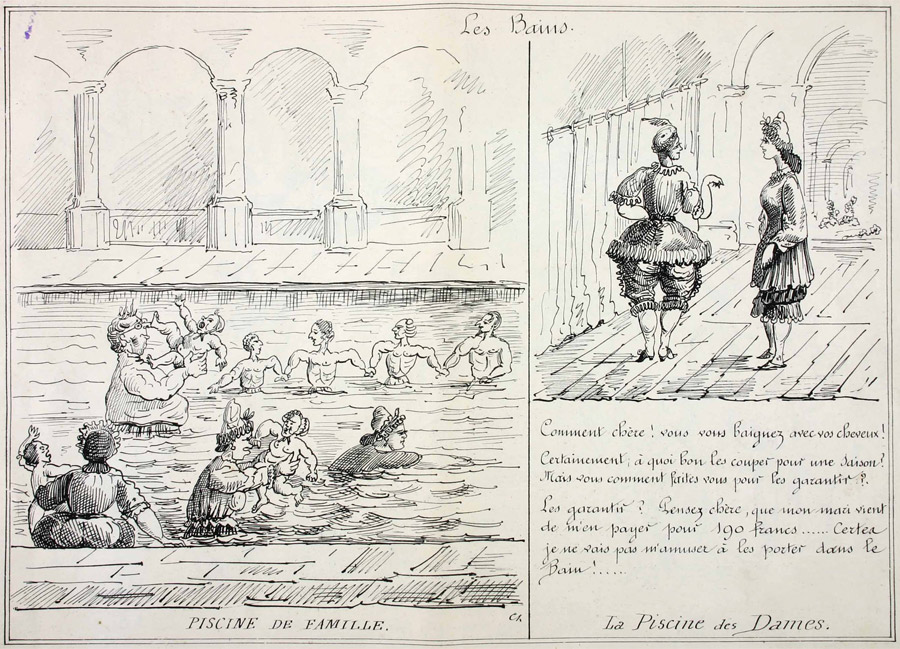 Les Bains.
PISCINE DE FAMILLE.
Cs.
Comment chère! vous vous baignez avec vos cheveux!
Certainement, à quoi bon les couper pour une Saison?
Mais vous comment faites vous pour les garantir?
Les garantir? Pensez chère, que mon mari vient
de m'en payer pour 190 francs...... Certes
je ne vais pas m'amuser à les porter dans le
Bain!.....
La Piscine des Dames.